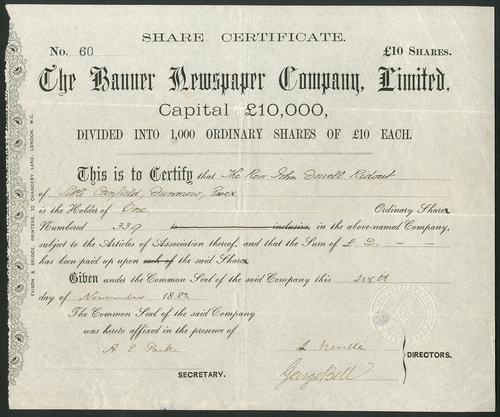 SHARE CERTIFICATE.
No. 60 £10 SHARES.
The Banner Newspaper Company, Limited.
Capital £10,000,
DIVIDED INTO 1,000 ORDINARY SHARES OF £10 EACH.
This is to Certify that The Rev. John Dowell Ridout
of Little Canfield, Dunmow, Essex
is the Holder of One Ordinary Share
Numbered 339 to inclusive, in the above-named Company,
subject to the Articles of Association thereof, and that the Sum of £ 2. — —
has been paid up upon each of the said Share
Given under the Common Seal of the said Company this sixth
day of November 1883
The Common Seal of the said Company
was hereto affixed in the presence of
A. E. Parke
SECRETARY.
Neville
George Bell
DIRECTORS.
EVISON & BRIDGE, PRINTERS, 22 CHANCERY LANE, LONDON, W.C.